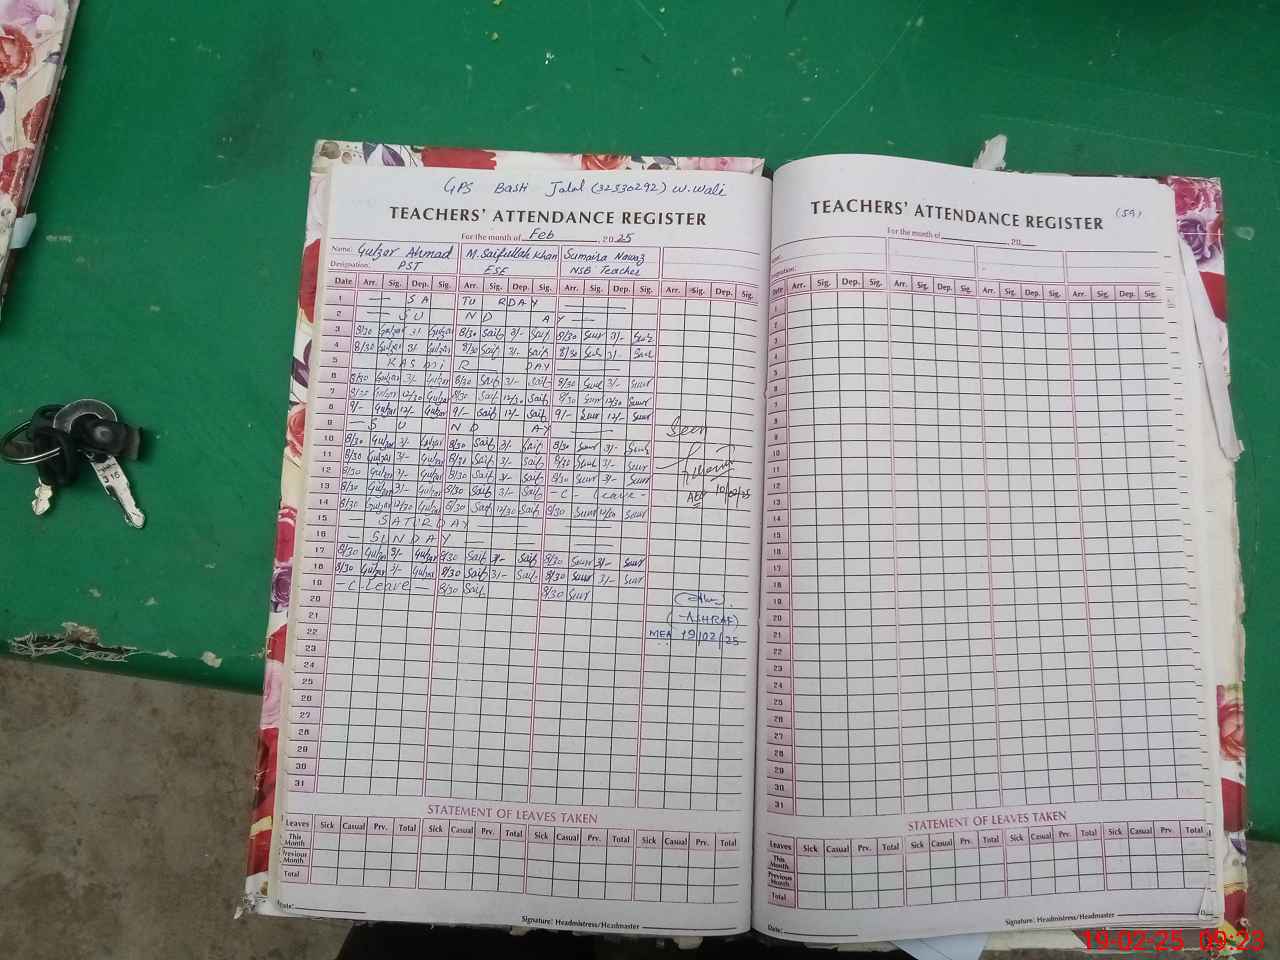 GPS Basti Jalal (32330292) W.Wali
TEACHERS' ATTENDANCE REGISTER
For the month of Feb, 2025
Name: Gulzar Ahmad M. Saifullah Khan Sumaira Nawaz
Designation: PST ESE NSB Teacher
Date Arr. Sig. Dep. Sig. Arr. Sig. Dep. Sig. Arr. Sig. Dep. Sig. Arr. Sig. Dep. Sig.
1 — SA TU RDAY —
2 — SU ND AY —
3 8/30 Gulzar 3/- Gulzar 8/30 Saif 3/- Saif 8/30 Sum 3/- Sum
4 8/30 Gulzar 3/- Gulzar 8/30 Saif 3/- Saif 8/30 Sum 3/- Sum
5 KASHMIR DAY
6 8/30 Gulzar 3/- Gulzar 8/30 Saif 3/- Saif 8/30 Sum 3/- Sum
7 8/30 Gulzar 12/30 Gulzar 8/30 Saif 12/30 Saif 8/30 Sum 12/30 Sum
8 9/- Gulzar 12/- Gulzar 9/- Saif 12/- Saif 9/- Sum 12/- Sum
9 — S U ND AY —
10 8/30 Gulzar 3/- Gulzar 8/30 Saif 3/- Saif 8/30 Sum 3/- Sum
11 8/30 Gulzar 3/- Gulzar 8/30 Saif 3/- Saif 8/30 Sum 3/- Sum
12 8/30 Gulzar 3/- Gulzar 8/30 Saif 3/- Saif 8/30 Sum 3/- Sum
13 8/30 Gulzar 3/- Gulzar 8/30 Saif 3/- Saif -C- Leave-
14 8/30 Gulzar 12/30 Gulzar 8/30 Saif 12/30 Saif 8/30 Sum 12/30 Sum
15 — SATURDAY —
16 — SUNDAY —
17 8/30 Gulzar 3/- Gulzar 8/30 Saif 3/- Saif 8/30 Sum 3/- Sum
18 8/30 Gulzar 3/- Gulzar 8/30 Saif 3/- Saif 8/30 Sum 3/- Sum
19 -C-Leave- 8/30 Saif 8/30 Sum
20
21
22
23
24
25
26
27
28
29
30
31
Seen
10/02/25
(ASHRAF)
MEA 19/02/25
STATEMENT OF LEAVES TAKEN
Leaves Sick Casual Prv. Total Sick Casual Prv. Total Sick Casual Prv. Total Sick Casual Prv. Total
This Month
Previous Month
Total
Date:
Signature: Headmistress/Headmaster
(59)
TEACHERS' ATTENDANCE REGISTER
For the month of , 20
Date Arr. Sig. Dep. Sig. Arr. Sig. Dep. Sig. Arr. Sig. Dep. Sig. Arr. Sig. Dep. Sig.
1
2
3
4
5
6
7
8
9
10
11
12
13
14
15
16
17
18
19
20
21
22
23
24
25
26
27
28
29
30
31
STATEMENT OF LEAVES TAKEN
Leaves Sick Casual Prv. Total Sick Casual Prv. Total Sick Casual Prv. Total Sick Casual Prv. Total
This Month
Previous Month
Total
Date:
Signature: Headmistress/Headmaster
19-02-25 09:23